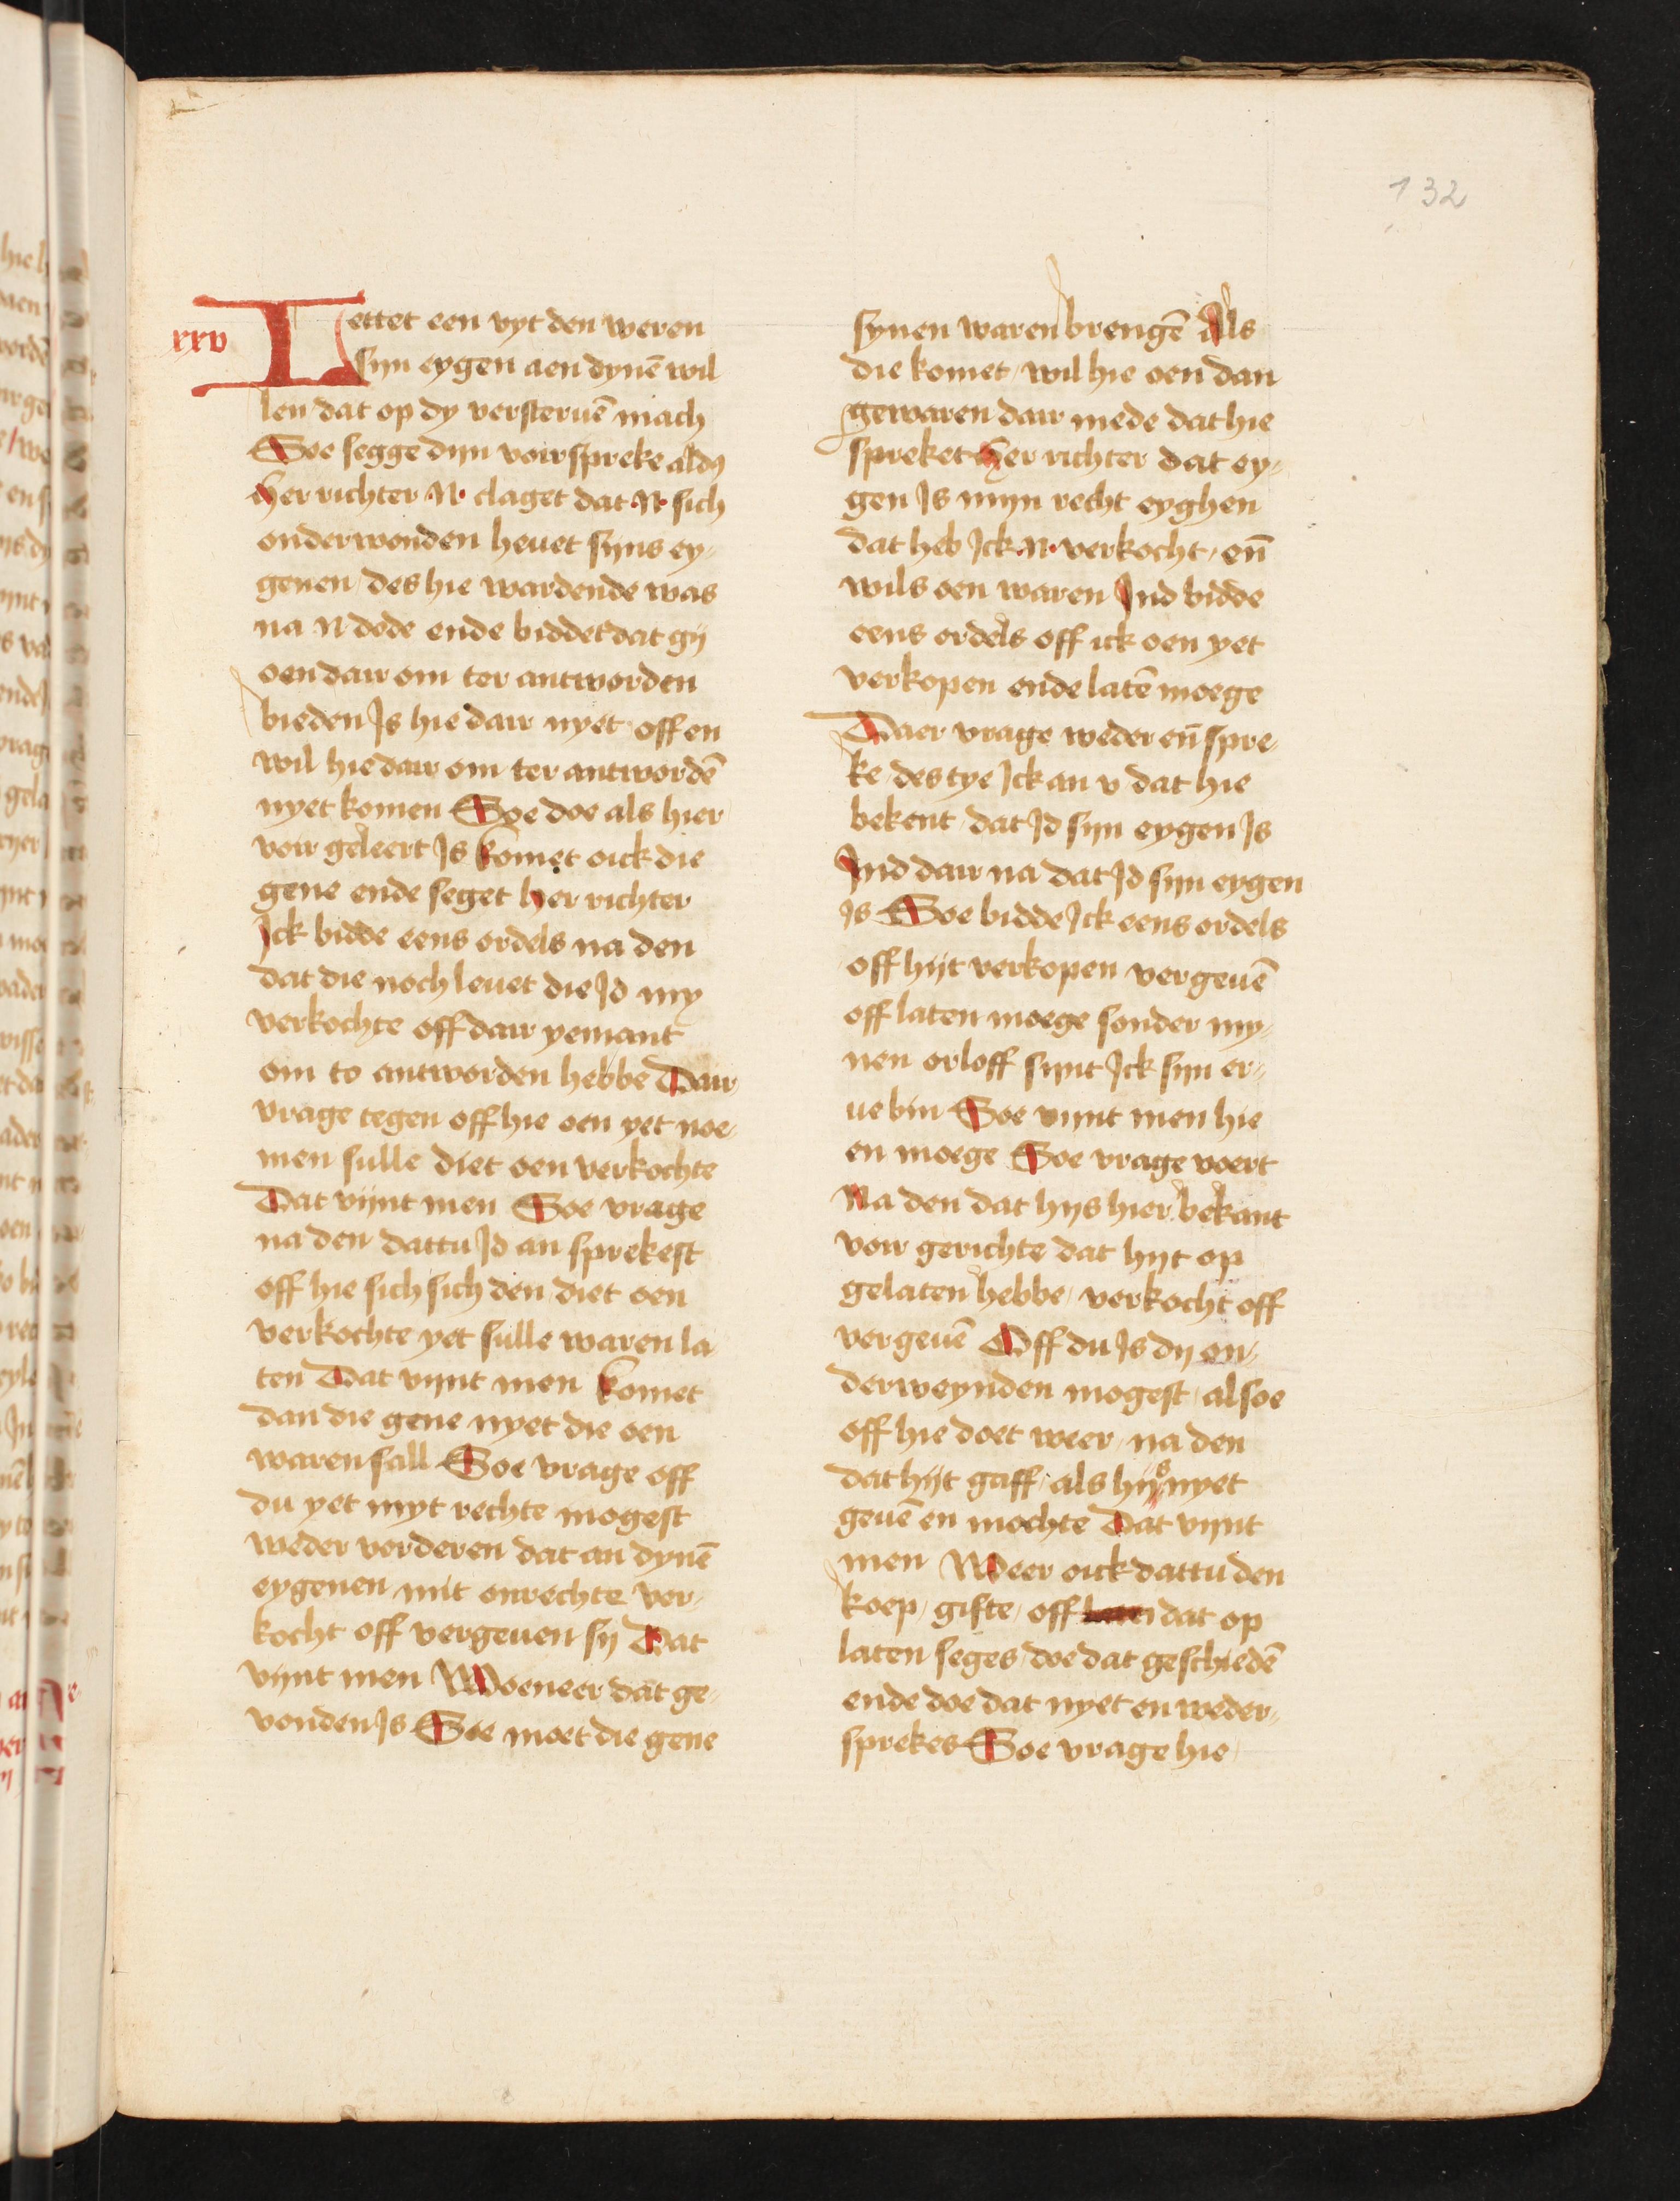 132
xxv
Lettet een vyt den weren
sijn eygen aen dynē wil
len dat op dy versteruē mach
Soe segge dijn voirspreke aldꝰ
her richter .N. claget dat .N. sich
onderwonden heuet sijns ey-
genen des hie wardende was
na N dode ende biddet dat gij
oen dair om ter antworden
bieden Js hie dair nyet off en
wil hie dair om ter antwordē
nyet komen Soe doe als hier
voir geleert Js komet oick die
gene ende seget her richter
Jck bidde eens ordels na den
dat die noch leuet die Jd my
verkochte off dair yemant
om to antworden hebbe Dair
vrage tegen off hie oen yet noe-
men sulle diet oen verkochte
Dat vijnt men Soe vrage
na den dattu Jd an sprekest
off hie sich sich den diet oen
verkochte yet sulle waren la
ten Dat vijnt men komet
dan die gene nyet die oen
waren sall Soe vrage off
du yet myt rechte mogest
weder vorderen dat an dynē
eygenen mit onrechte ver-
kocht off vergeuen sij Dat
vijnt men Woeneer dat ge-
vonden Js Soe moet die gene
synen waren brengē Als
die komet wil hie oen dan
gewaren dair mede dat hie
spreket her richter dat ey-
gen Js mijn recht eyghen
dat heb Jck .N. verkocht en̄
wils oen waren Jnd bidde
eens ordels off ick oen yet
verkopen ende latē moege
Daer vrage weder en̄ spre-
ke des tye Jck an v dat hie
bekent dat Jd sijn eygen Js
Jnd dair na dat Jd sijn eygen
is Soe bidde Jck eens ordels
off hijt verkopen vergeuē
off laten moege sonder my-
nen orloff sijnt Jck sijn er-
ue bin Soe vijnt men hie
en moege Soe vrage voert
Na den dat hijs hier bekant
voir gerichte dat hijt op
gelaten hebbe verkocht off
vergeuē Off du Js dij on-
derweynden mogest alsoe
off hie doet weer na den
dat hijt gaff als hijs nyet
geuē en mochte Dat vijnt
men Weer oick dattu den
koep gifte off dat op
laten seges doe dat geschiedē
ende doe dat nyet en weder-
sprekes Soe vrage hie